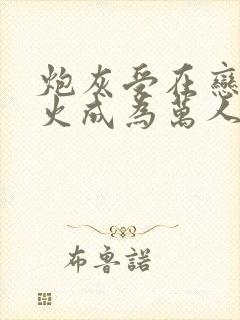 炮灰受在戀
火成為萬人
布魯諾